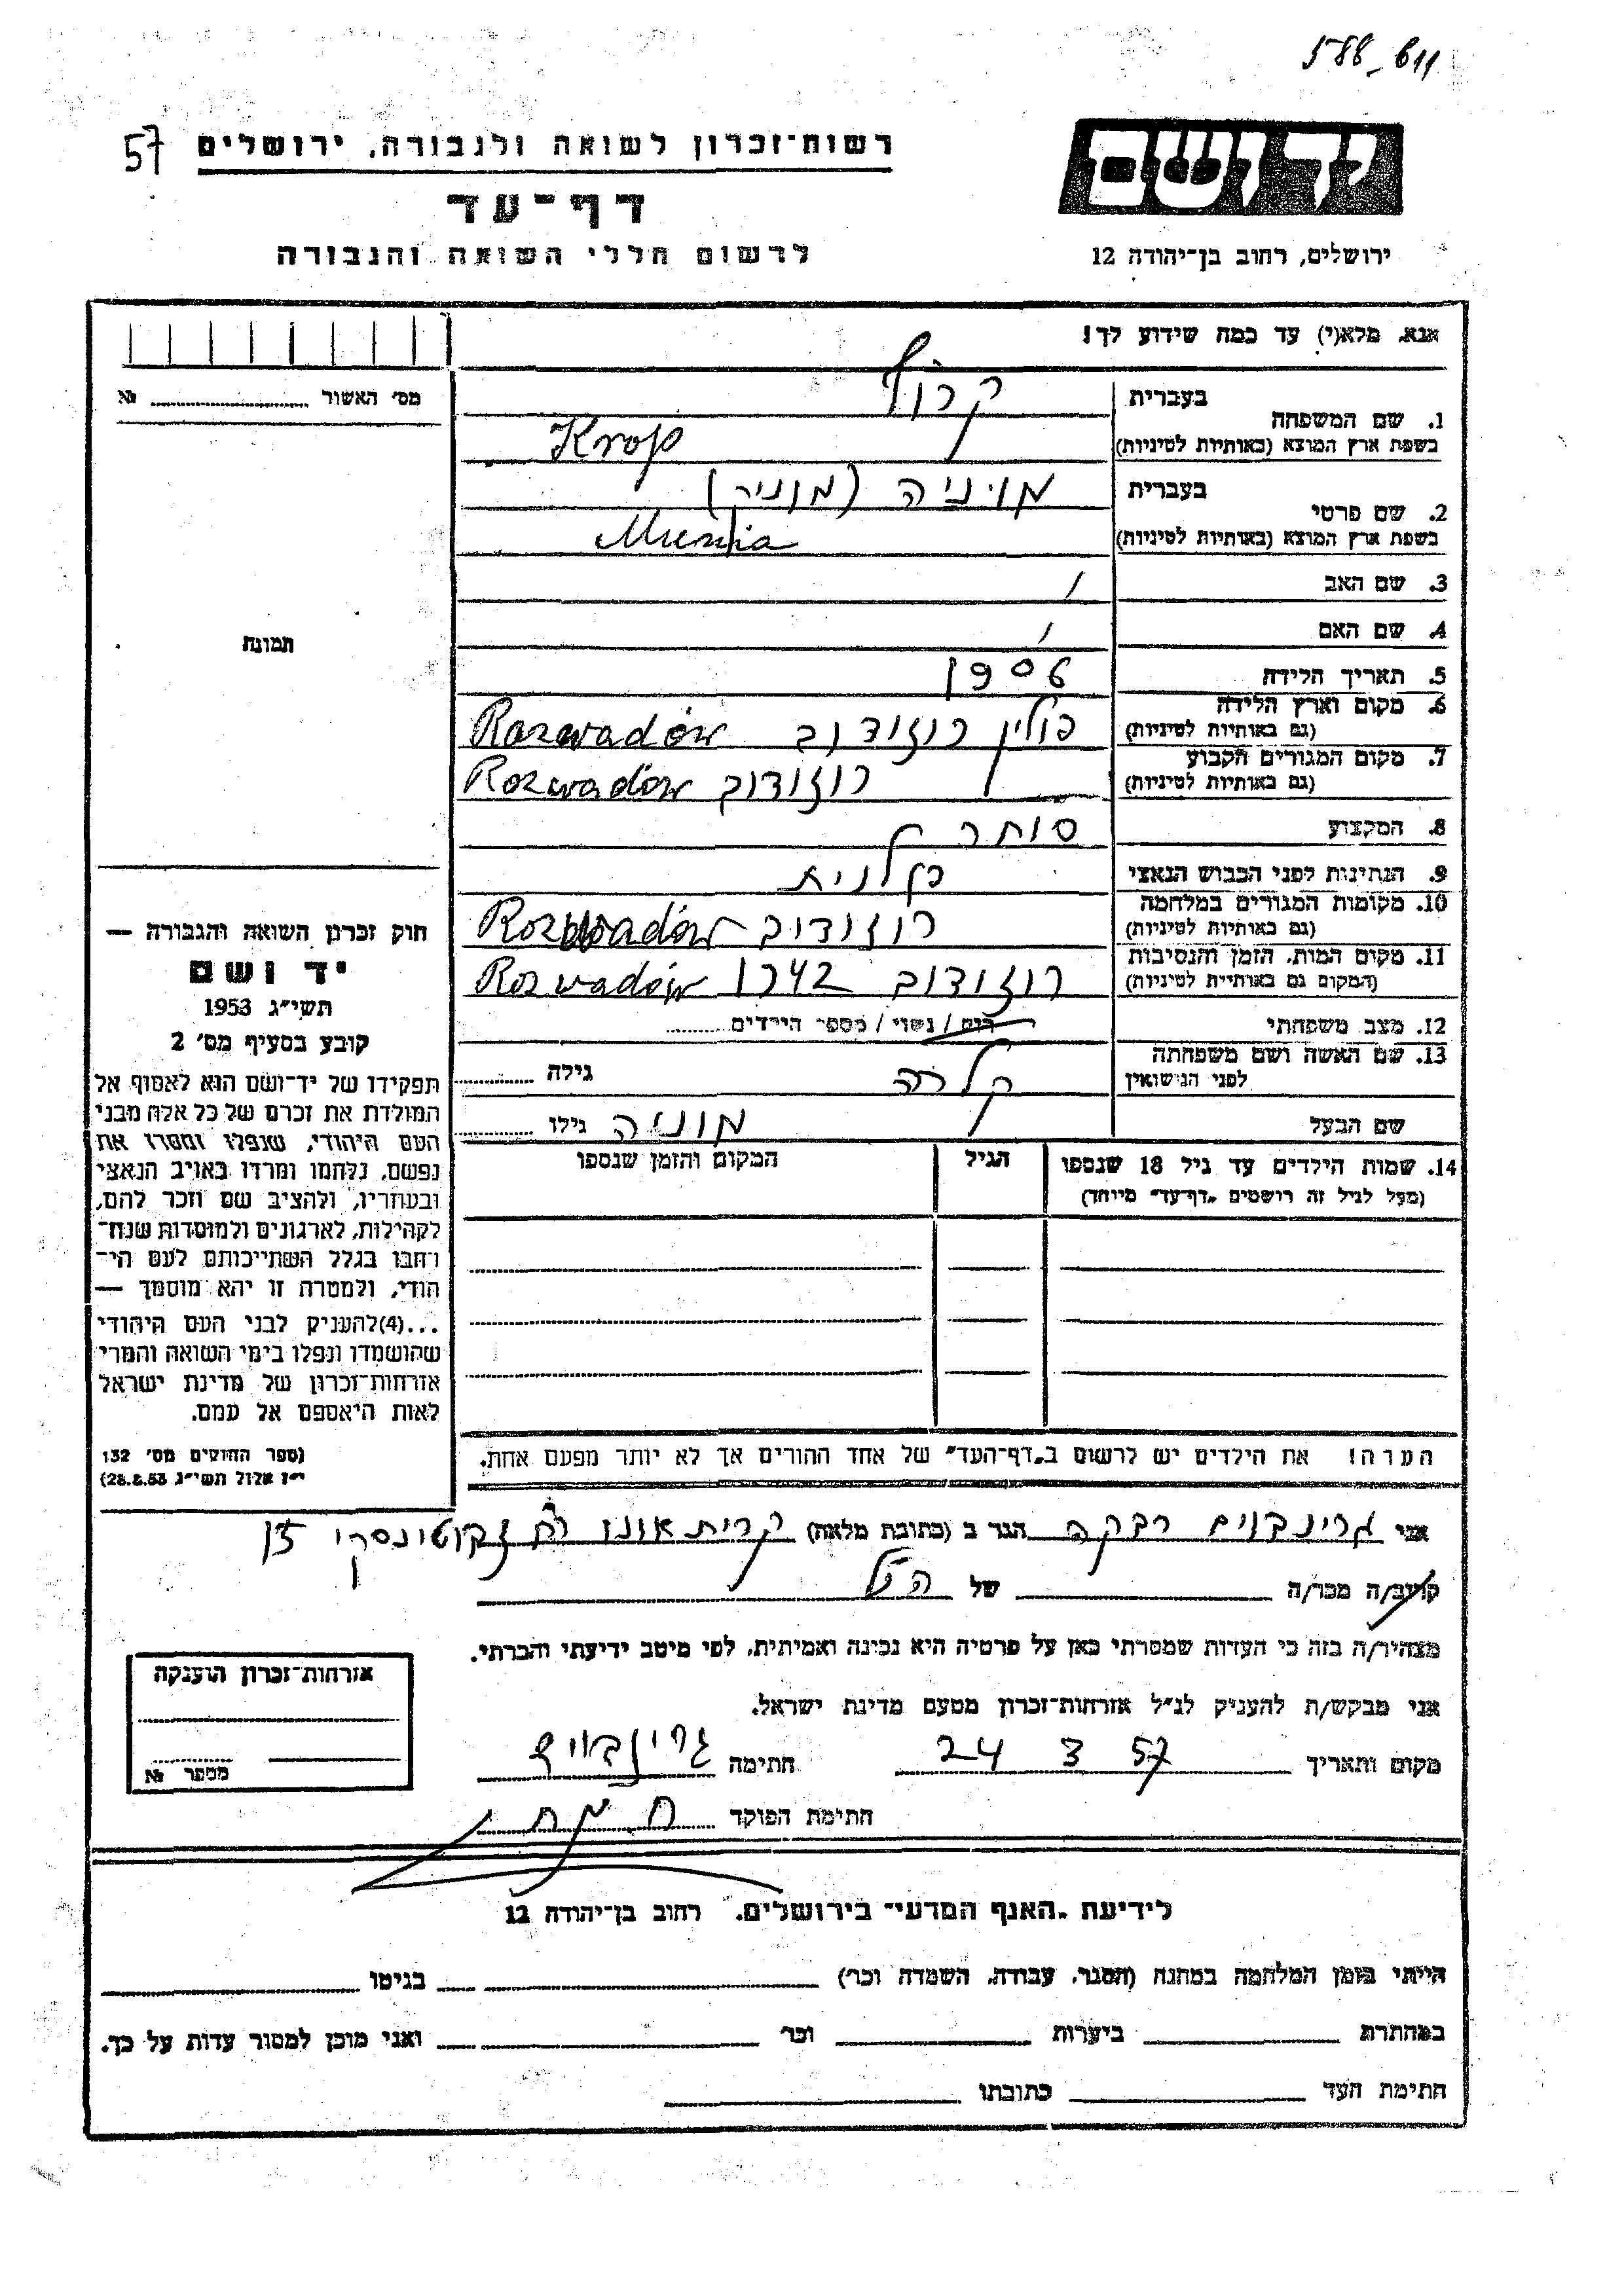 588-611
57
רשות־זכרון לשואה ולגבורה, ירושלים
יד ושם
דף־עד
לרשום חללי השואה והגבורה
ירושלים, רחוב בן־יהודה 12
אנא, מלא(י) עד כמה שידוע לך!
מס' האשור № 
1. שם המשפחה
בעברית
קרופ
בשפת ארץ המוצא (באותיות לטיניות)
Krop
2. שם פרטי
בעברית
מוניה (מוניה)
בשפת ארץ המוצא (באותיות לטיניות)
Munia
3. שם האב /
4. שם האם /
תמונה
5. תאריך הלידה 1906
6. מקום וארץ הלידה
(גם באותיות לטיניות)
פולין רוזודוב Rozwadów
7. מקום המגורים הקבוע
(גם באותיות לטיניות)
רוזודוב Rozwadów
8. המקצוע סוחר
9. הנתינות לפני הכבוש הנאצי פולנית
10. מקומות המגורים במלחמה
(גם באותיות לטיניות)
רוזודוב Rozwadów
11. מקום המות, הזמן והנסיבות
(המקום גם באותיית לטיניות)
רוזודוב 1942 Rozwadów
12. מצב משפחתי רוק / נשוי / מספר הילדים
13. שם האשה ושם משפחתה
לפני הנישואין
קלרה גילה
שם הבעל מוניה גילו
חוק זכרון השואה והגבורה —
יד ושם
תשי״ג 1953
קובע בסעיף מס' 2
תפקידו של יד־ושם הוא לאסוף אל
המולדת את זכרם של כל אלה מבני
העם היהודי, שנפלו ומסרו את
נפשם, נלחמו ומרדו באויב הנאצי
ובעוזריו, ולהציב שם וזכר להם,
לקהילות, לארגונים ולמוסדות שנח־
רחבו בגלל השתייכותם לעם הי־
הודי, ולמטרה זו יהא מוסמך —
...(4)להעניק לבני העם היהודי
שהושמדו ונפלו בימי השואה והמרי
אזרחות־זכרון של מדינת ישראל
לאות היאספם אל עמם.
(ספר החוקים מס' 132
י״ז אלול תשי״ג 28.8.53)
14. שמות הילדים עד גיל 18 שנספו
(מעל לגיל זה רושמים „דף־עד״ מייוחד)
הגיל
המקום והזמן שנספו
הערה! את הילדים יש לרשום ב„דף־העד״ של אחד ההורים אך לא יותר מפעם אחת.
אני גרינבוים רבקה הגר ב (כתובת מלאה) קרית אונו רח' זבוטינסקי
קרוב/ה מכר/ה של הנ״ל
מצהיר/ה בזה כי העדות שמסרתי כאן על פרטיה היא נכונה ואמיתית, לפי מיטב ידיעתי והכרתי.
אני מבקש/ת להעניק לנ״ל אזרחות־זכרון מטעם מדינת ישראל.
מקום ותאריך 24 3 57 חתימה גרינבוים
חתימת הפוקד
אזרחות־זכרון הוענקה
מספר №
לידיעת „האגף המדעי״ בירושלים, רחוב בן־יהודה 12
הייתי בזמן המלחמה במחנה (הסגר, עבודה, השמדה וכר') בגיטו
במחתרת ביערות וכר' ואני מוכן למסור עדות על כך.
חתימת העד כתובתו